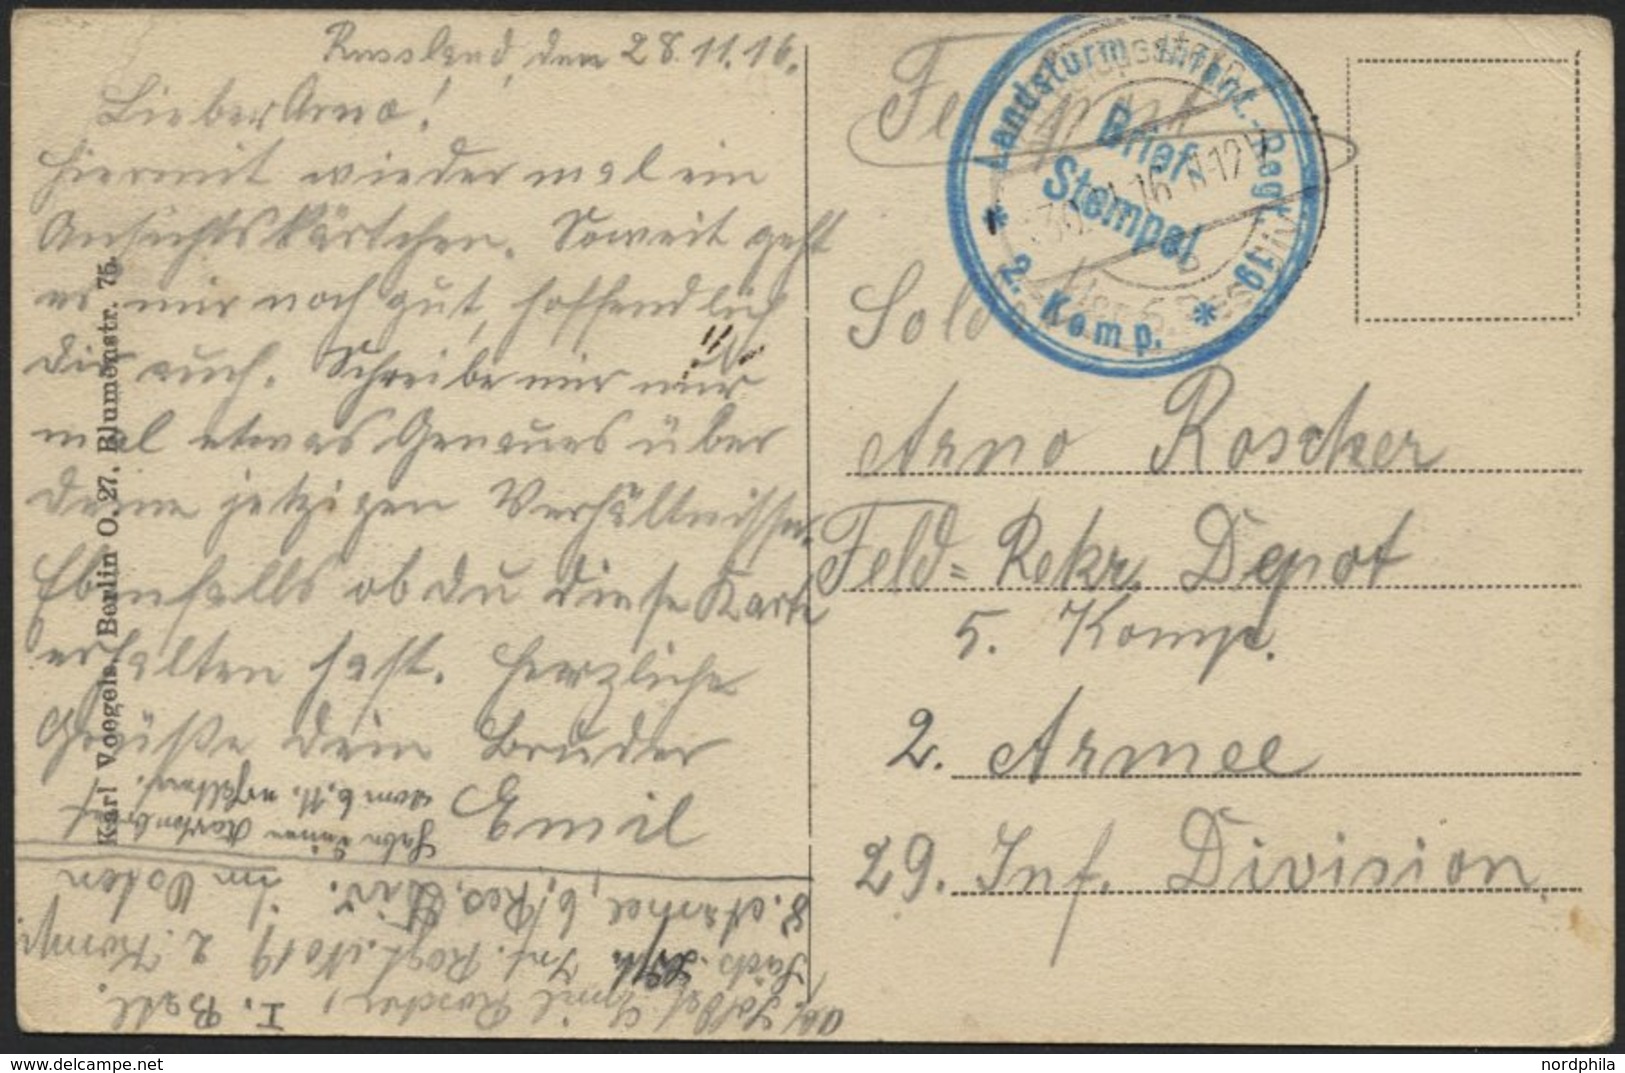 Russland, den 28.11.16.
Lieber Arno!
Hiermit wieder mal ein
Ansichtskärtchen. Soweit geht
es mir noch gut, hoffendlich
dir auch. Schreibe mir nur
mal etwas Genaues über
deine jetzigen Verhältnisse.
Ebenfalls ob du diese Karte
erhalten hast. Herzliche
Grüße dein Bruder
Emil
Habe deinen Kartenbrief
vom 6.11. erhalten.
Abs. Soldat Emil Roscher, I. Batl.
Sächs. Ldst. Inf. Regt. No 19 2. Komp.
8. Armee, 6. Res. Div. im Osten
Karl Voegels, Berlin O. 27, Blumenstr. 75.
Feldpost
Landsturm-Infant.-Regt. 19
Brief-
Stempel
* 2. Komp. *
Sold
Arno Roscher
Feld=Rekr. Depot
5. Komp.
2. Armee
29. Inf. Division.
nordphila